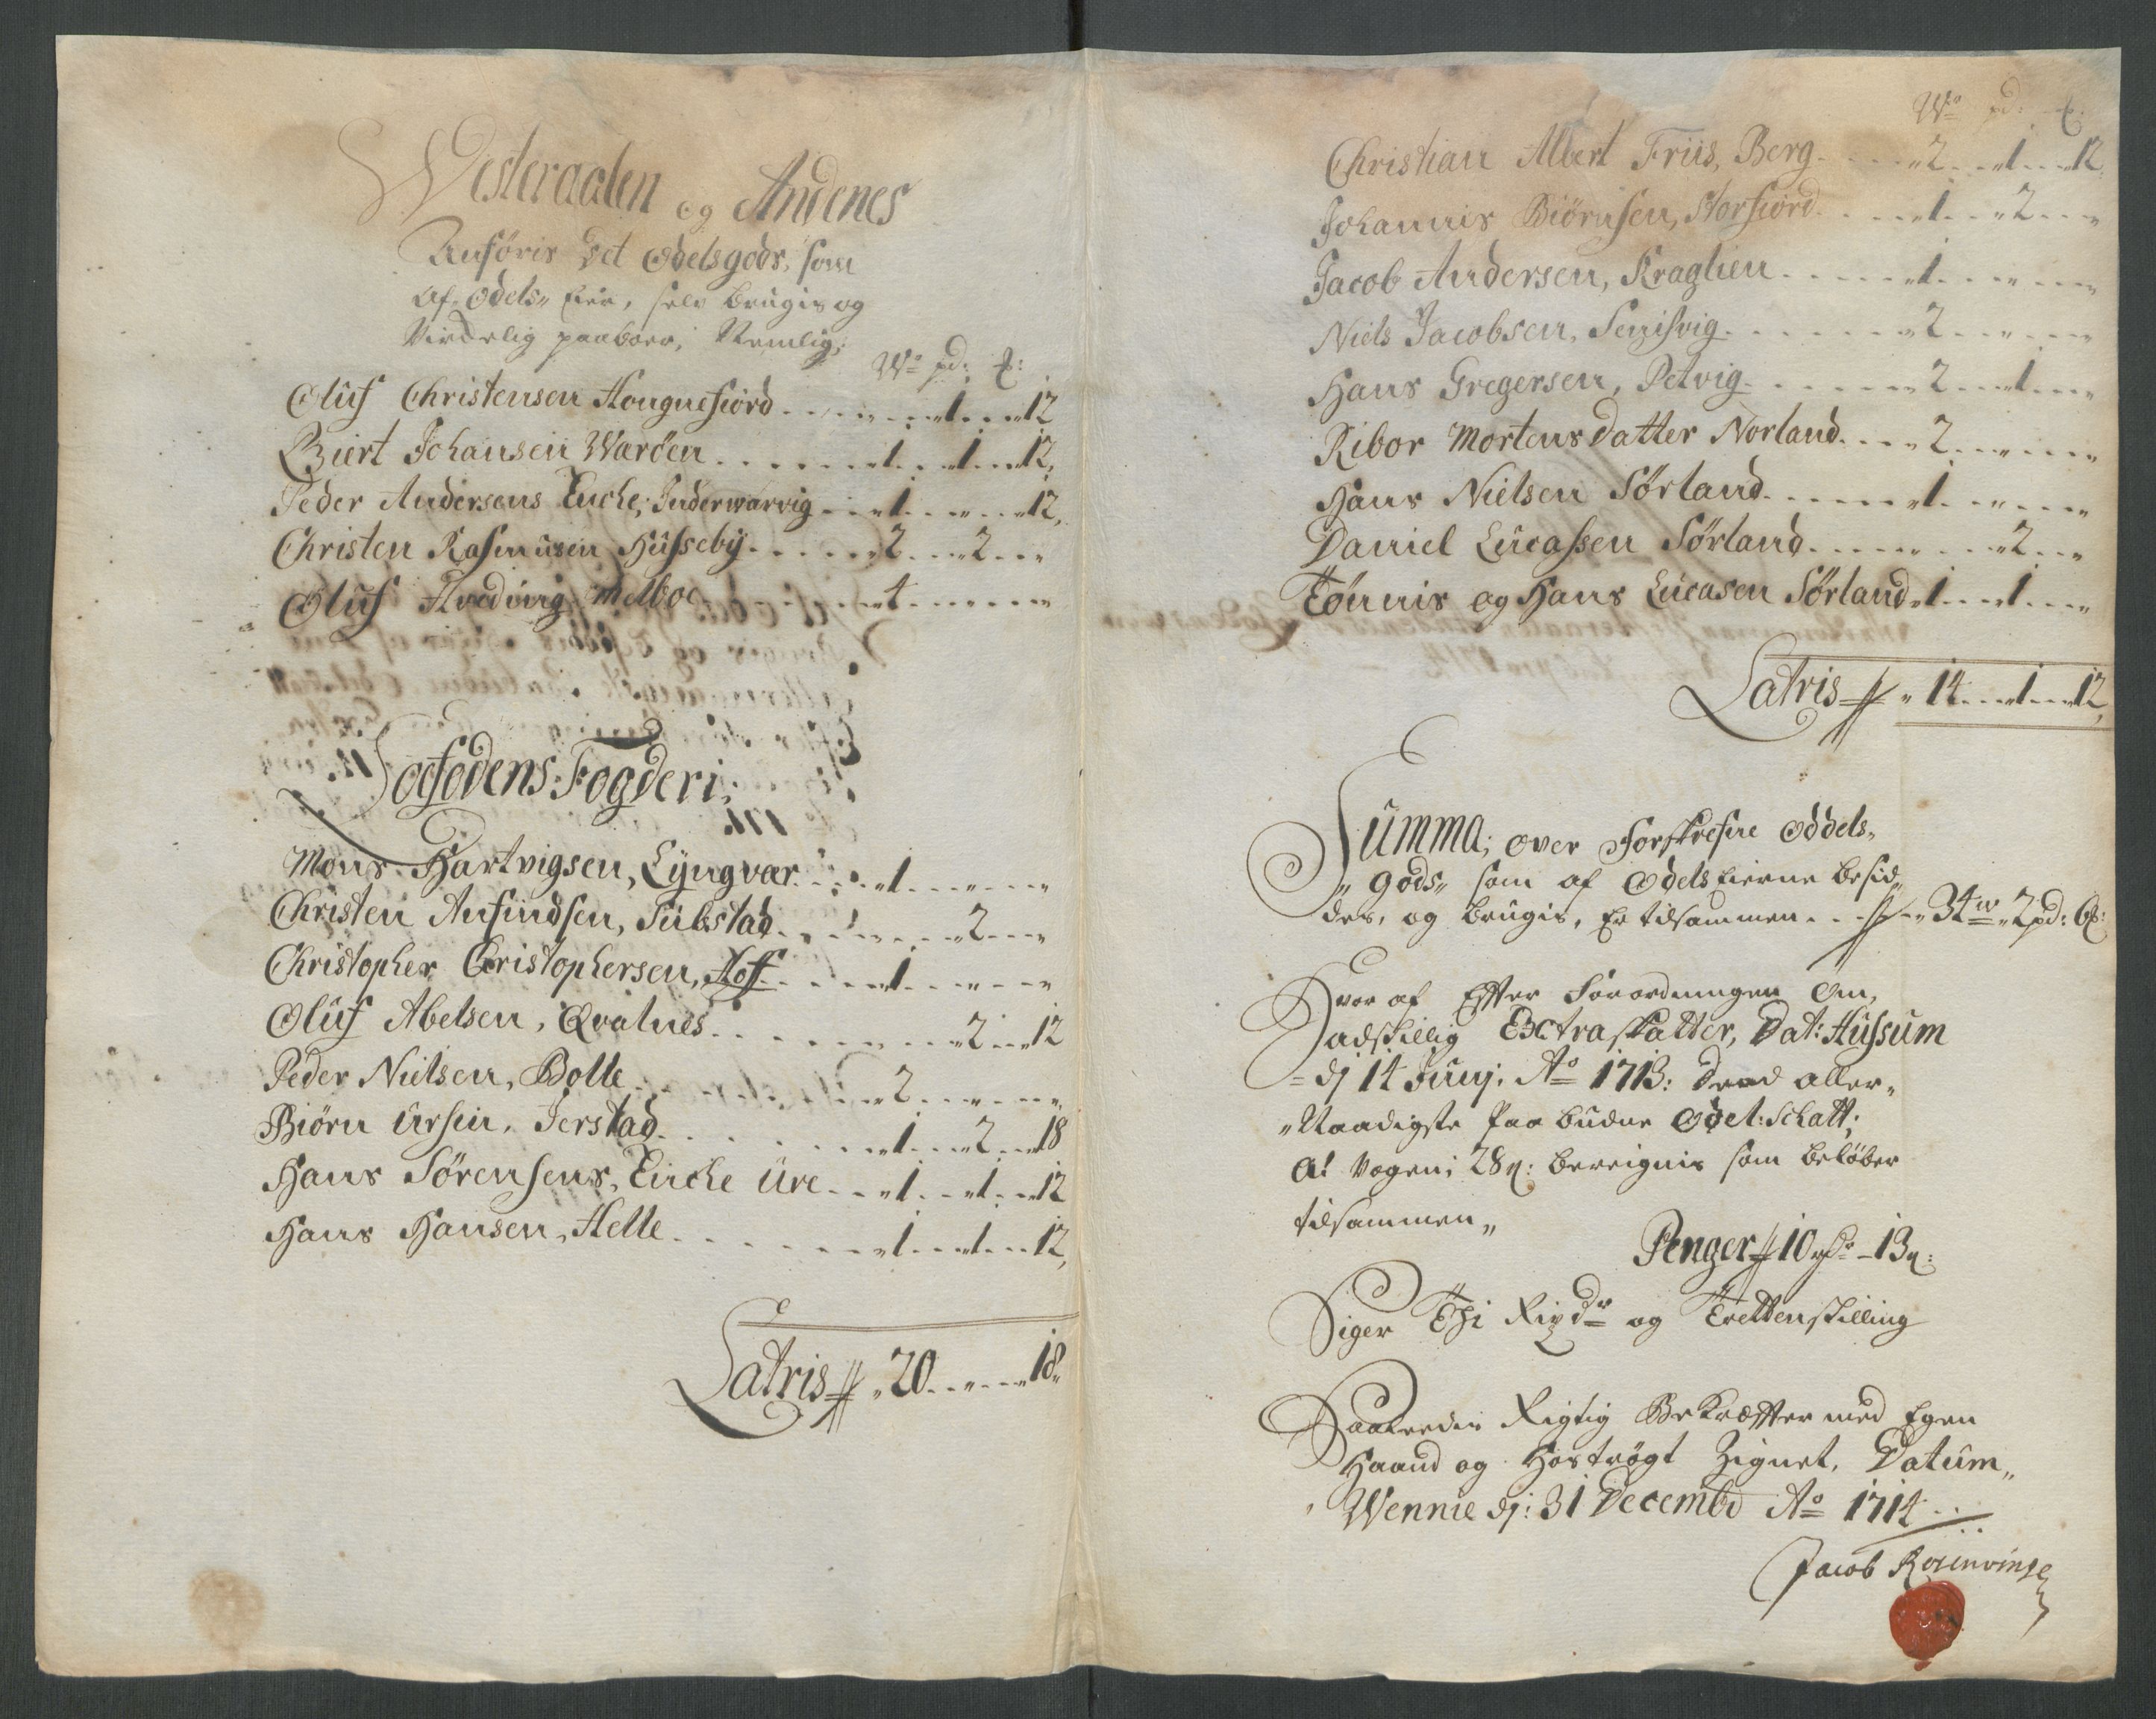 Westeraalen og Andenes
Anföris det Odelsgods, som
af Odels Eier, selv brugis og
Virdelig paaboer, Nemlig,
Wo pd: ℔:
Oluf Christensen Hougnefiord . . . . „ . . 1 . . 12
Biert Johansen Waröen . . . . 1 . . 1 . . 12,
Peder Andersens Encke, Inderwarvig . . 1 . . „ . . 12,
Christen Rasmusen Hüsseby . . . . 2 . . 2 . . „
Oluf Hvedvig Melboe . . . . 4 . . „ . . „
Lofodens Fogderi,
Mons Hartvigsen, Lyngvær . . . 1 . . „ . . „
Christen Anfindsen, Sübstad . . . „ . . 2 . . „
Christopher Christophersen, Hoff . . . 1 . . „ . . „
Oluf Abelsen, Qvalnes . . . „ . . 2 . . 12
Peder Nielsen, Bolle . . . 2 . . „ . . „
Biörn Ursin, Jerstad . . . 1 . . 2 . . 18
Hans Sörensens, Encke Üre . . 1 . . 1 . . 12
Hans Hansen, Helle . . . 1 . . 1 . . 12,
Latris „ 20 . . „ . . 18„
Wo pd: ℔:
Christian Albert Friis, Berg . . . 2 . . 1 . . 12.
Johannis Biörnsen, Storfiord . . . 1 . . 2 . . „
Jacob Andersen, Kraglien . . . 1 . . „ . . „
Niels Jacobsen, Senisvig . . . 2 . . „ . . „
Hans Gregersen, Petvig . . . 2 . . 1 . . „
Ribor Mortensdatter Norland . . . 2 . . „ . . „
Hans Nielsen Sörland . . . 1 . . „ . . „
Daniel Lucassen Sörland . . . „ . . 2 . . „
Tönnis og Hans Lucasen Sörland „ 1 . . 1 . . „
Latris „ 14 . . 1 . . 12,
Summa, over Forskrefne Oddels„
„gods„ som af Odels Eierne besid„
des, og brugis, Er tilsammen . . „ 34 w „ 2 pd: 6 ℔:
Hvor af Effter Forordningen Om,
Adskillig Extraskatter, Dat: Hussum
dj 14 Junj: Ao 1713: Dend aller„
„Naadigste Paabudne Odel: Schatt;
At Vogen: 28 s: bereignis som beløber
tilsammen„
Penger 10 Rdr – 13 s:
Siger Thi Rixdr og Trettenskilling
Saaledis Rigtig Bekræffter med Egen
Haand og Hoströgt Zignet, Datum„
Wennie dj: 31 Decembr Ao 1714
Jacob Rosenvinge